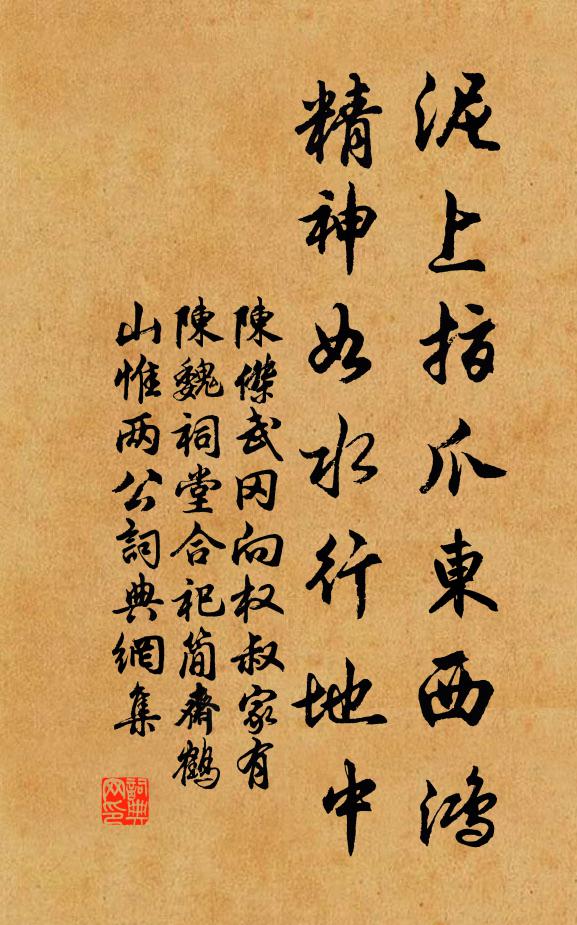 泥上指爪東西鴻
精神如水行地中
陳傑武冈向权叔家有
陳魏祠堂合祀简齋鶴
山惟两公詞典網集
詞典网印